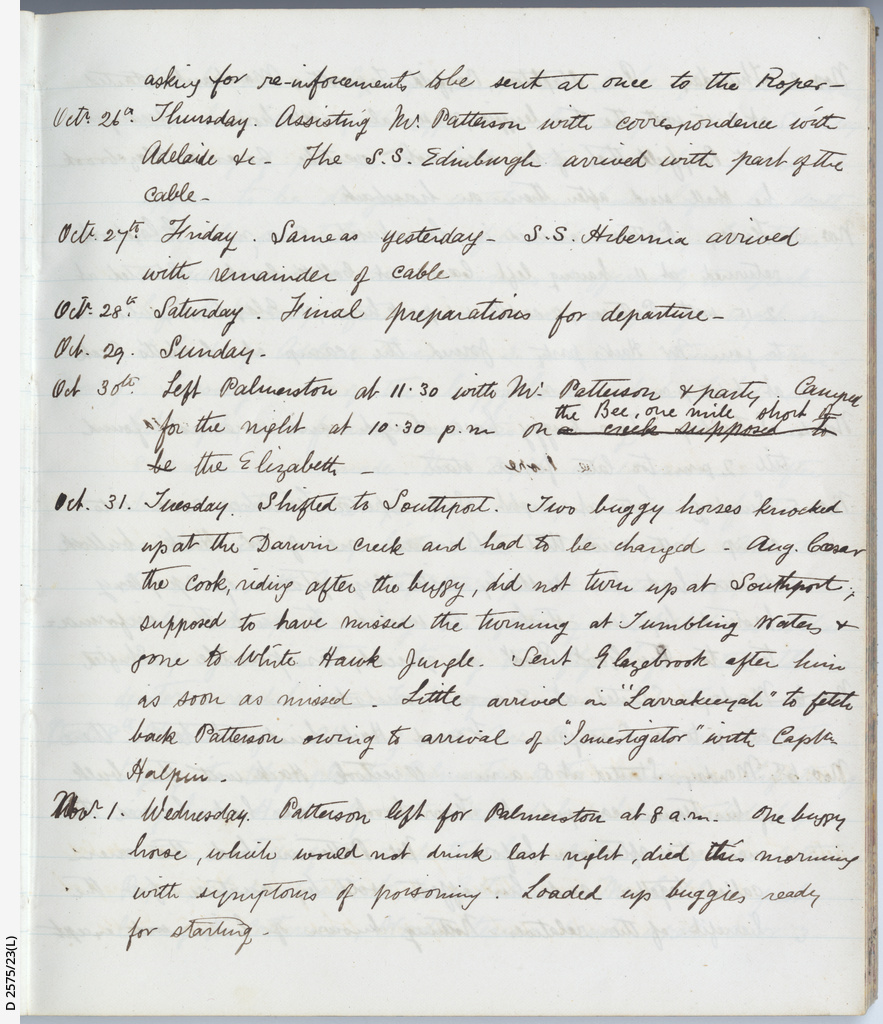 asking for re-inforcements to be sent at once to the Roper -
Octr. 26th. Thursday. Assisting Mr. Patterson with correspondence with
Adelaide &c - The S.S. Edinburgh arrived with part of the
cable -
Oct. 27th. Friday. Same as yesterday - S.S. Hibernia arrived
with remainder of cable
Octr. 28th. Saturday. Final preparations for departure -
Oct. 29. Sunday -
Oct 30th. Left Palmerston at 11.30 with Mr. Patterson & party. Camped
the Bee, one mile short of
for the night at 10.30 p.m on a creek supposed to
be the Elizabeth -
Oct. 31. Tuesday. Shifted to Southport. Two buggy horses knocked
up at the Darwin creek and had to be changed - Aug. Cæsar
the cook, riding after the buggy, did not turn up at Southport;
supposed to have missed the turning at Tumbling Waters &
gone to White Hawk Jungle. Sent Glazebrook after him
as soon as missed. Little arrived in "Larrakeeyah" to fetch
back Patterson owing to arrival of "Investigator" with Captn.
Halpin.
Novr. 1. Wednesday. Patterson left for Palmerston at 8 a.m. One buggy
horse, which would not drink last night, died this morning
with symptoms of poisoning. Loaded up buggies ready
for starting -
D 2575/23(L)